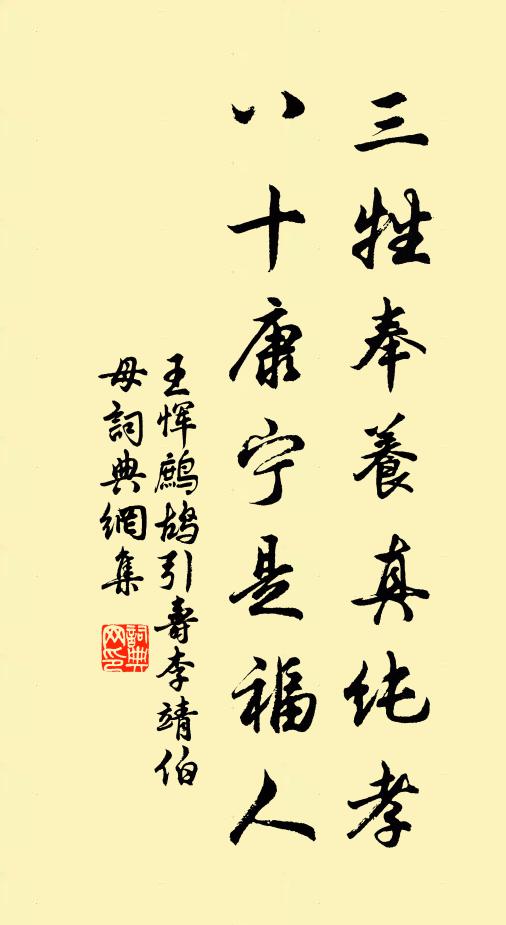 三牲奉養真純孝
八十康宁是福人
王恽鷓鴣引壽李靖伯
母詞典網集
詞典
网印